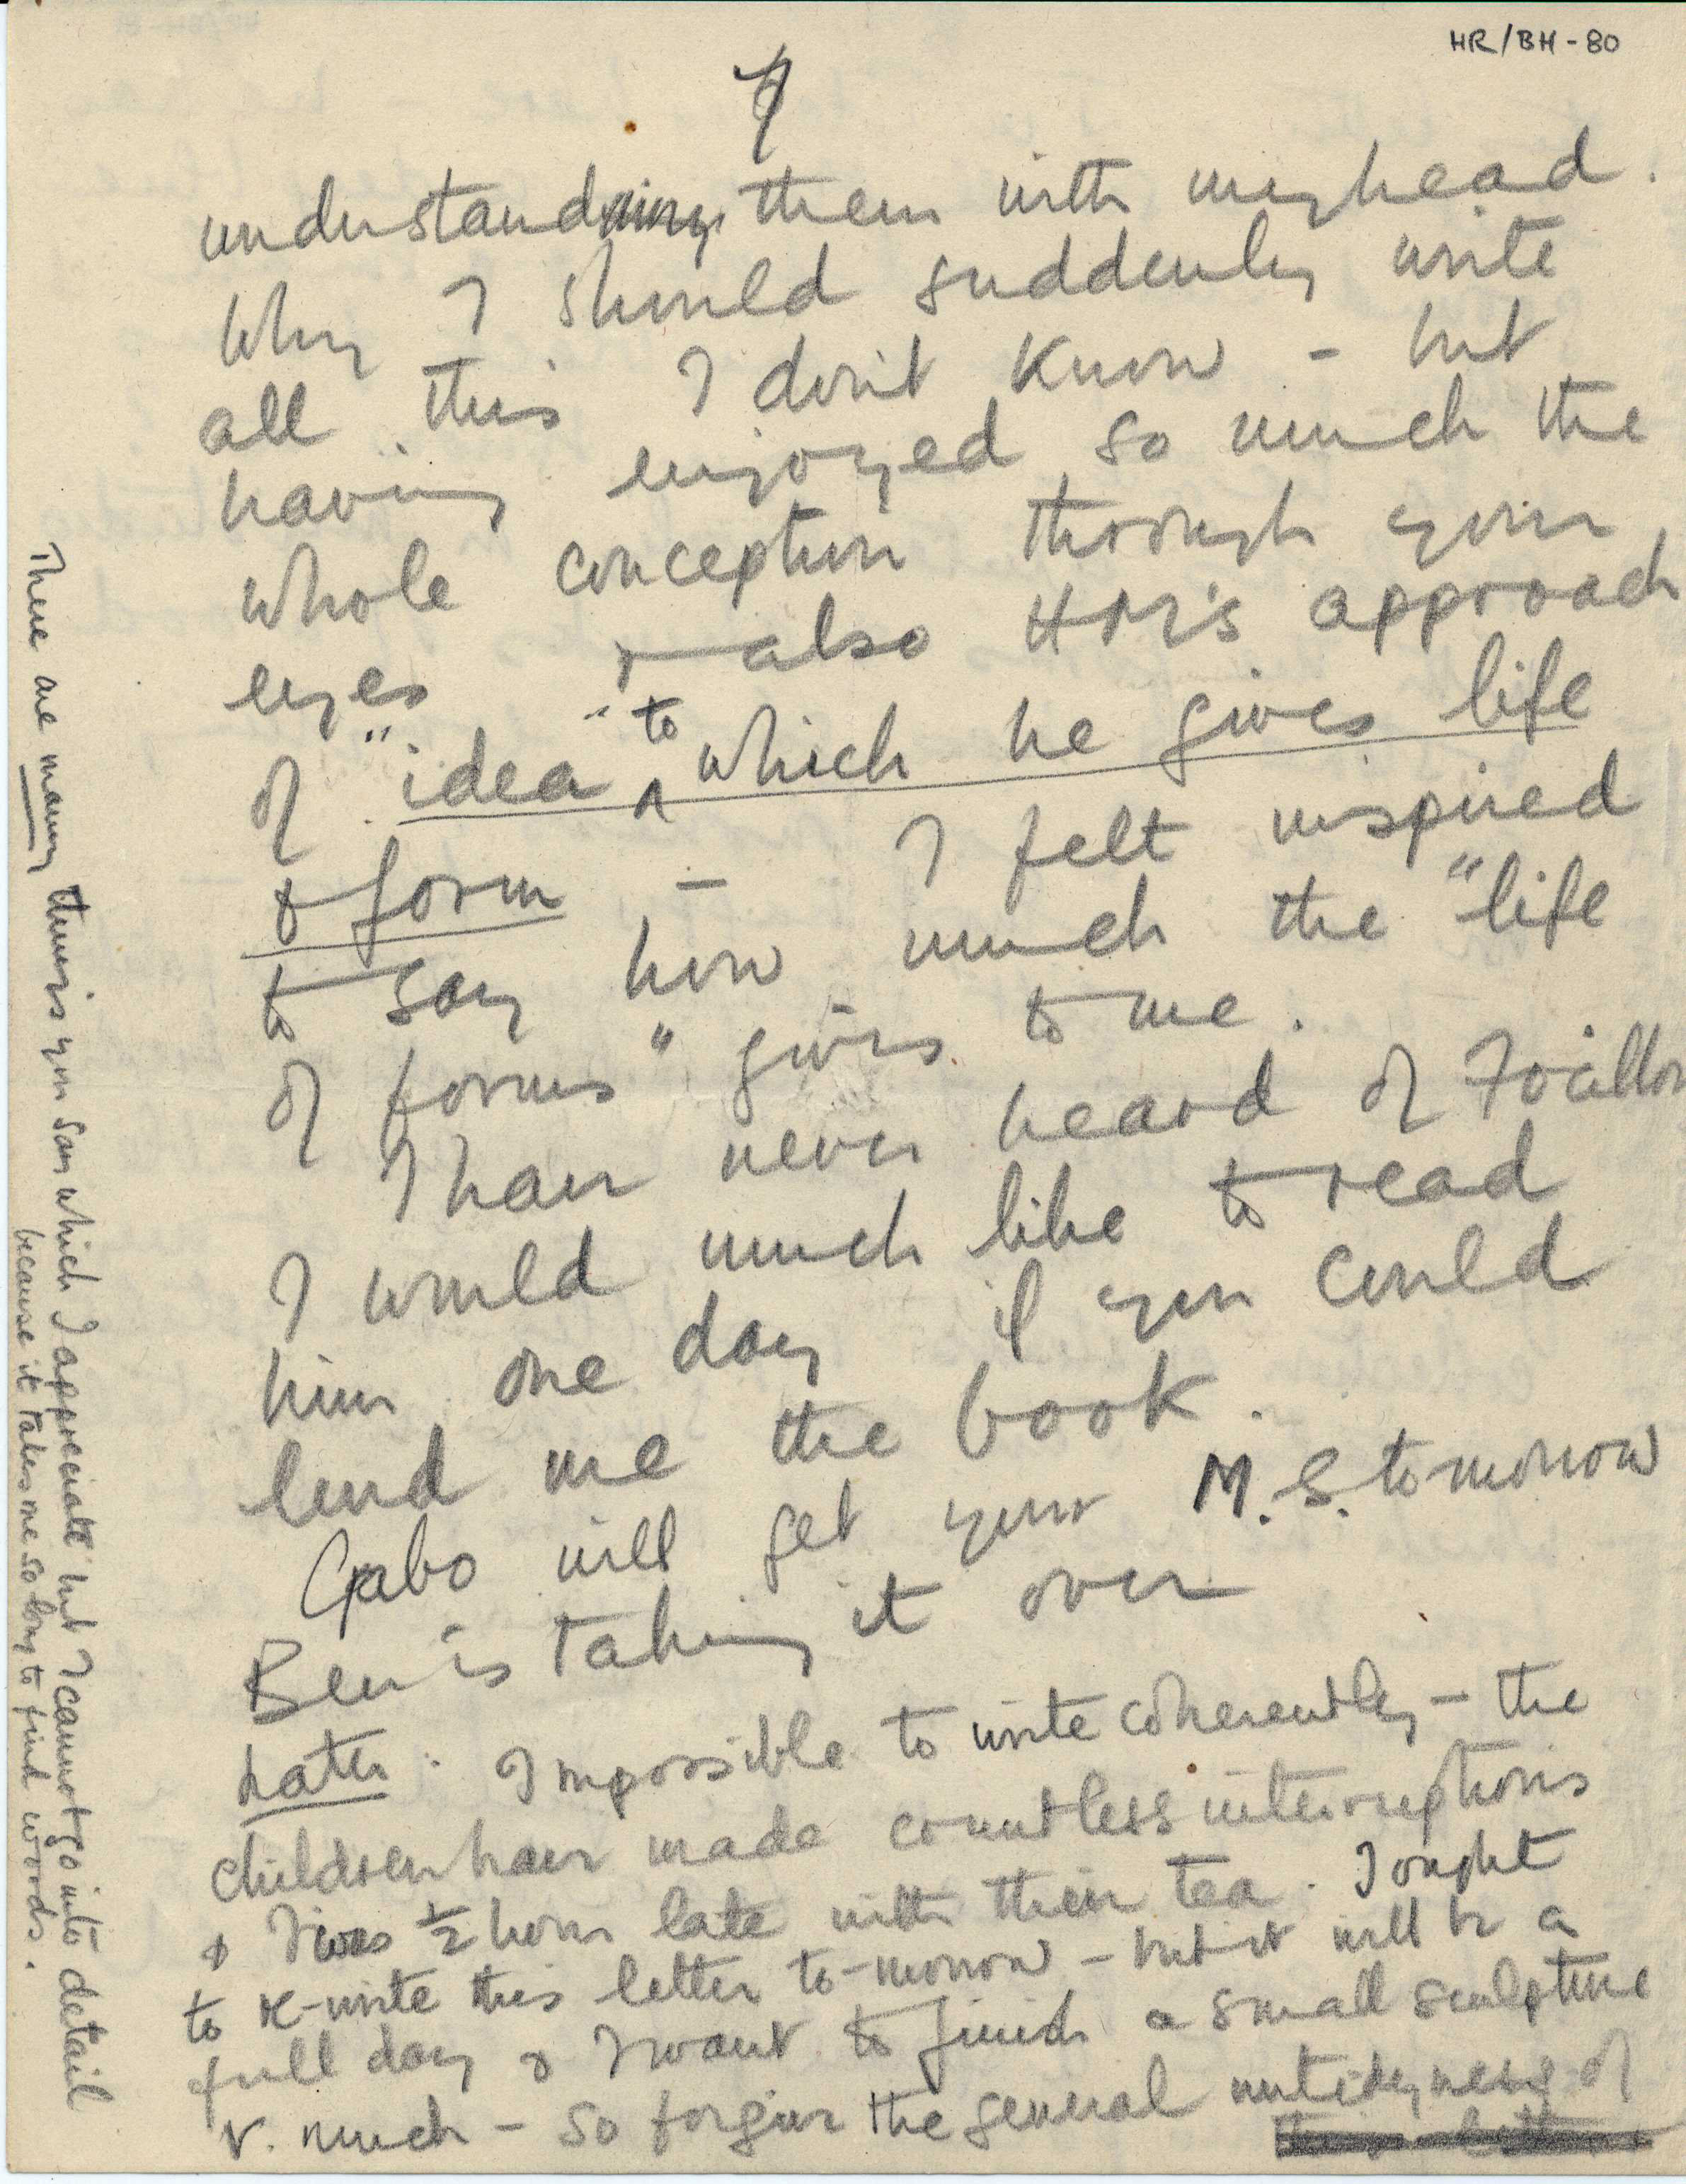 HR/BH-80
7
understanding them with my head.
Why I should suddenly write
all this I don't know – but
having enjoyed so much the
whole conception through your
eyes & also HM's approach
of "idea" to which he gives life
& form – I felt inspired
to say how much the "life
of forms" gives to me.
I have never heard of Focillon
I would much like to read
him one day if you could
lend me the book.
Gabo will get your M.S. tomorrow
Ben is taking it over
Later: Impossible to write coherently – the
children have made countless interruptions
& I was ½ hour late with their tea. I ought
to re-write this letter to-morrow – but it will be a
full day & I want to finish a small sculpture
v. much – so forgive the general untidyness of
There are many things you say which I appreciate but I cannot go into detail
because it takes me so long to find words.